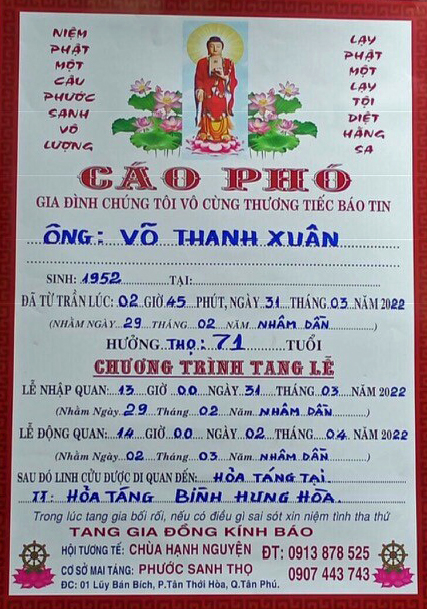 NIỆM
PHẬT
MỘT
CÂU
PHƯỚC
SANH
VÔ
LƯỢNG
LẠY
PHẬT
MỘT
LẠY
TỘI
DIỆT
HẰNG
SA
CÁO PHÓ
GIA ĐÌNH CHÚNG TÔI VÔ CÙNG THƯƠNG TIẾC BÁO TIN
ÔNG: VÕ THANH XUÂN
SINH: 1952 TẠI:
ĐÃ TỪ TRẦN LÚC: 02 GIỜ 45 PHÚT, NGÀY 31 THÁNG 03 NĂM 2022
(NHẰM NGÀY 29 THÁNG 02 NĂM NHÂM DẦN)
HƯỞNG THỌ: 71 TUỔI
CHƯƠNG TRÌNH TANG LỄ
LỄ NHẬP QUAN: 13 GIỜ 00 NGÀY 31 THÁNG 03 NĂM 2022
(Nhằm Ngày 29 Tháng 02 Năm NHÂM DẦN)
LỄ ĐỘNG QUAN: 14 GIỜ 00 NGÀY 02 THÁNG 04 NĂM 2022
(Nhằm Ngày 02 Tháng 03 Năm NHÂM DẦN)
SAU ĐÓ LINH CỮU ĐƯỢC DI QUAN ĐẾN: HỎA TÁNG TẠI
TT: HỎA TÁNG BÌNH HƯNG HÒA.
Trong lúc tang gia bối rối, nếu có điều gì sai sót xin niệm tình tha thứ
TANG GIA ĐỒNG KÍNH BÁO
HỘI TƯƠNG TẾ: CHÙA HẠNH NGUYỆN ĐT: 0913 878 525
CƠ SỞ MAI TÁNG: PHƯỚC SANH THỌ 0907 443 743
ĐC: 01 Lũy Bán Bích, P.Tân Thới Hòa, Q.Tân Phú.